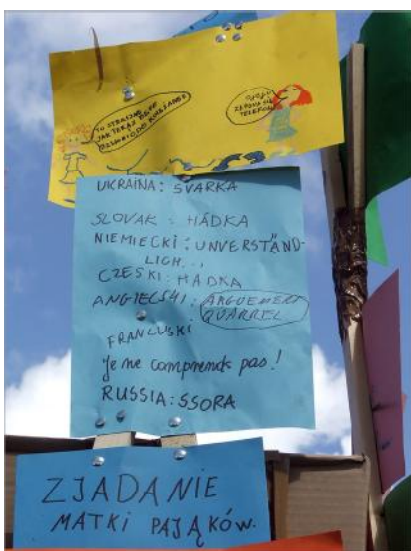 TO STRASZNE
JAK TERAZ BĘDĘ
DZWONIŁ DO KOLEŻANEK
OJOJU
ZEPSUŁ SIĘ
TELEFON
UKRAINA: SVARKA
SLOVAK : HÁDKA
NIEMIECKI : UNVERSTÄND-
LICH...
CZESKI: HADKA
ANGIELSKI : ARGUEMENT
QUARREL
FRANCUSKI :
Je ne comprends pas!
RUSSIA: SSORA
ZJADANIE
MATKI PAJĄKÓW.